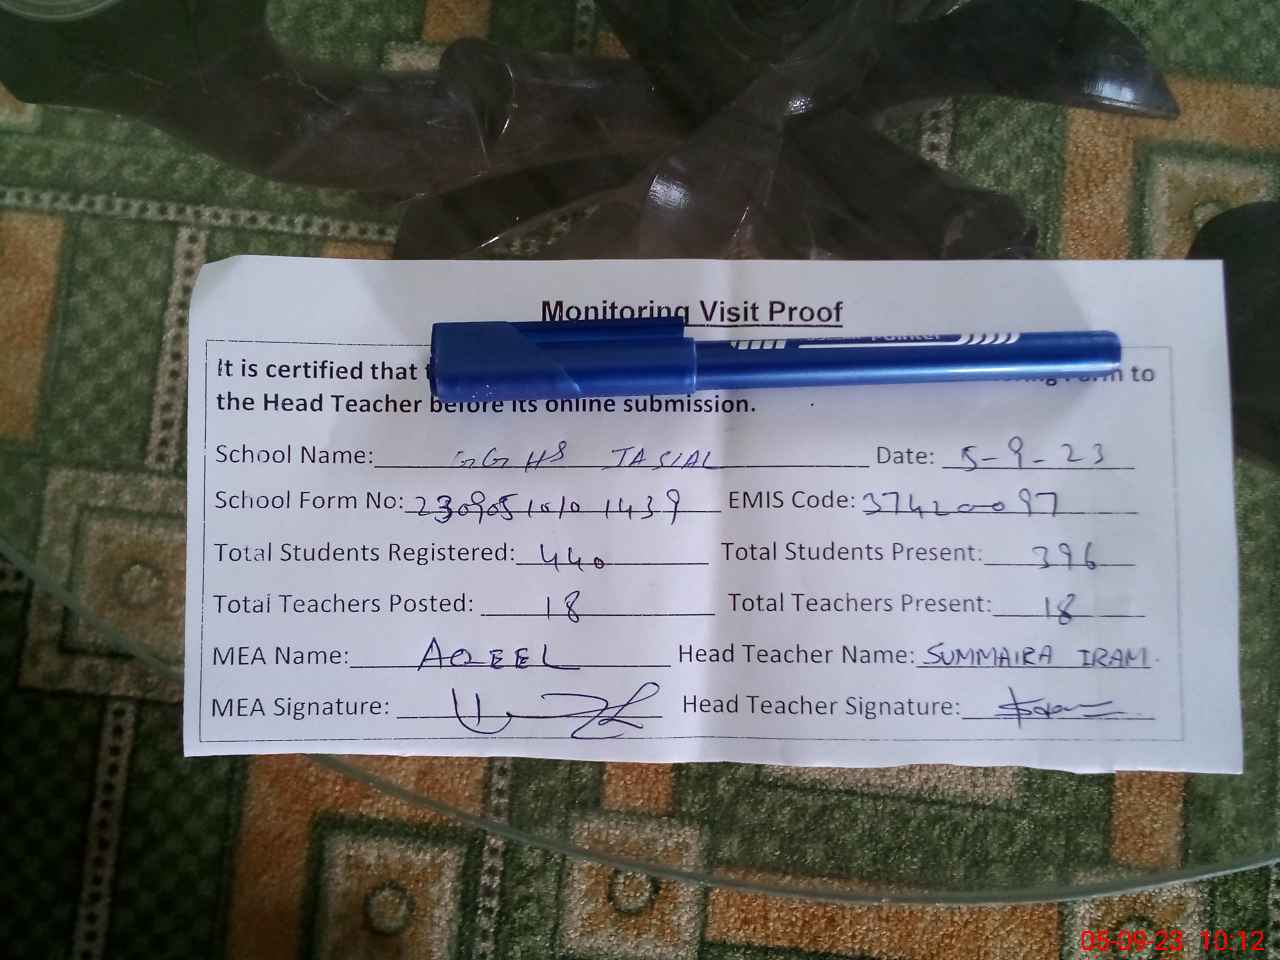 Monitoring Visit Proof
Pointer
It is certified that to
the Head Teacher before its online submission.
School Name: GGHS JASIAL Date: 5-9-23
School Form No: 23090510101439 EMIS Code: 37420097
Total Students Registered: 440 Total Students Present: 396
Total Teachers Posted: 18 Total Teachers Present: 18
MEA Name: AQEEL Head Teacher Name: SUMMAIRA IRAM.
MEA Signature: Head Teacher Signature:
05-09-23 10:12